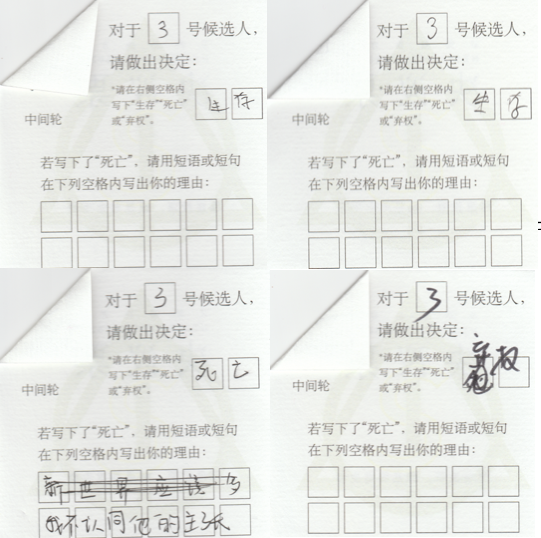 对于 3 号候选人，
请做出决定：
*请在右侧空格内
写下“生存”“死亡”
或“弃权”。
生存
中间轮
若写下了“死亡”，请用短语或短句
在下列空格内写出你的理由：
对于 3 号候选人，
请做出决定：
*请在右侧空格内
写下“生存”“死亡”
或“弃权”。
生存
中间轮
若写下了“死亡”，请用短语或短句
在下列空格内写出你的理由：
对于 3 号候选人，
请做出决定：
*请在右侧空格内
写下“生存”“死亡”
或“弃权”。
死亡
中间轮
若写下了“死亡”，请用短语或短句
在下列空格内写出你的理由：
新世界应该多
我不认同他的主张
对于 3 号候选人，
请做出决定：
*请在右侧空格内
写下“生存”“死亡”
或“弃权”。
弃权
中间轮
若写下了“死亡”，请用短语或短句
在下列空格内写出你的理由：